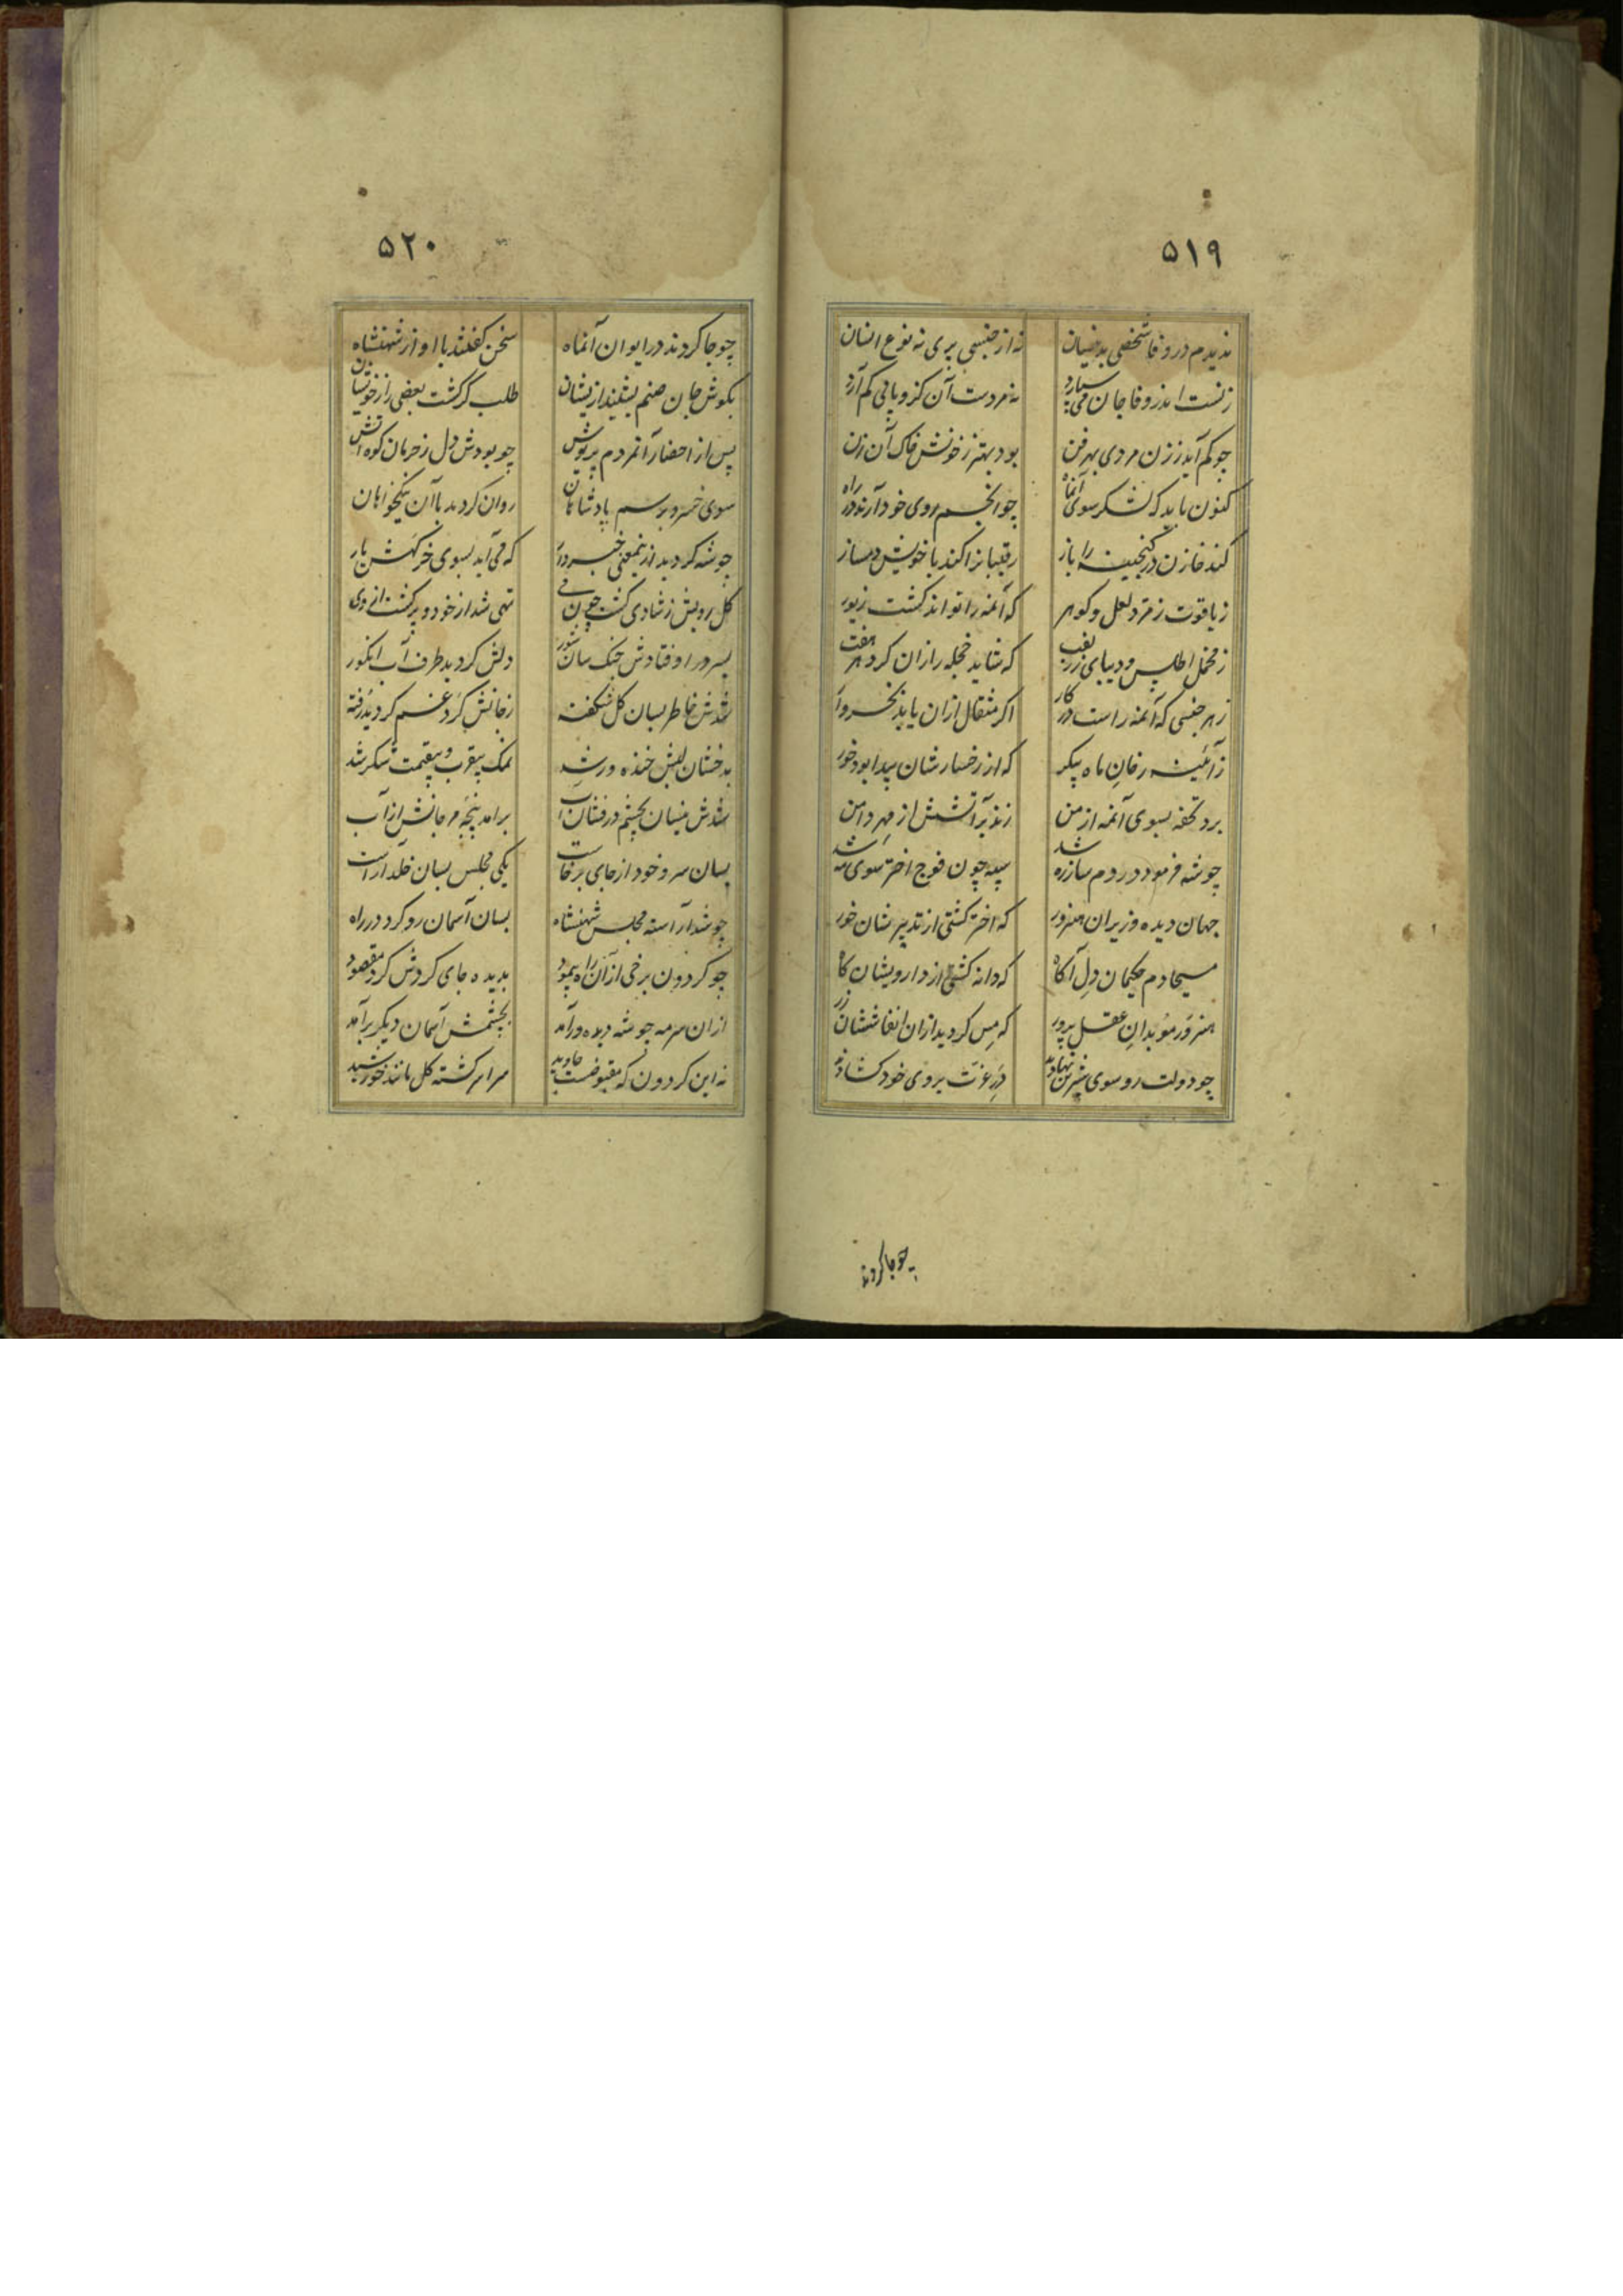 ۵۱۹
ندیدم در وفا شخصی بدینسان نه از جنس پری نه نوع انسان
زنست اندر وفا جان می سپارد نه مردست آن کزو پائی کم آرد
چو کم آید ززن مردی بهر فن بود بهتر ز خونش خاک آن زن
کنون باید که لشکر سوی آنماه چو انجم روی خود آرند در راه
کند خازن در گنجینه را باز رقیبانرا کند با خویش دمساز
ز یاقوت زمرد لعل و کوهر که آنمه را تواند کشت زیور
ز مخمل اطلس و دیبای زربفت که شاید حجله را زان کرد هر هفت
ز هر جنسی که آنمه راست در کار اگر مثقال ازان باید بخروار
ز آئینه رخان ماه پیکر که از رخسارشان پیدا بود خور
برد تحفه بسوی آنمه از من زند بر آتشش از مهر دامن
چو شه فرمود در دم ساز ره شد سپه چون فوج اختر سوی مه شد
جهان دیده وزیران هنرور که اختر کشتی از تدبیرشان خور
مسیحادم حکیمان دل آکاه که دانه کشتی از دارویشان کاه
هنرور موبدان عقل پرور که مس کردید ازان انفاسشان زر
چو دولت رو سوی شیرین نهادند در عزت بروی خود کشادند
چو جا کردند
۵۲۰
چو جا کردند در ایوان آنماه سخن کفتند با او از شهنشاه
بکوش جان صنم بشنید ازیشان طلب کرکشت بعضی را ز خویشان
پس از احضار آنمردم پریوش چو بودش دل ز حرمان کوه آتش
سوی خسرو برسم پادشاهان روان کردید با آن نیکخواهان
چو شه کردید ازینمعنی خبردار که می آید بسوی خرکهش یار
کل رویش ز شادی کشت چون می تهی شد از خود و پر کشت از وی
بسر در اوفتادش چنک سان شور دلش کردید طرف آب انکور
شدش خاطر بسان کل شکفته ز جانش کرد غم کردید رفته
بدخشان لبش خنده ور شد نمک بیقرب و بیقیمت شکر شد
شدش نیسان بچشم درفشان آب برامد پنجه مرجانش از آب
بسان سرو خود از جای برخاست یکی مجلس بسان خلد آراست
چو شد آراسته مجلس شهنشاه بسان آسمان رو کرد در راه
چو کردون برخی از آن راه پیمود بدیده جای کردش کرد مقصود
ازان سرمه چو شه دیده ورآمد بچشمش آسمان دیگر برآمد
نه این کردون که مقبوضست جاوید سراسر کشته کل مانند خورشید